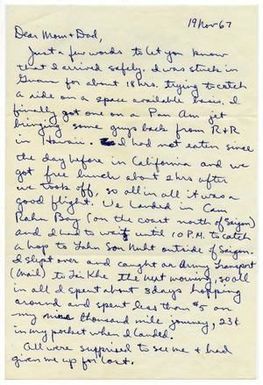 19 Nov 67
Dear Mom & Dad,
Just a few words to let you know
that I arrived safely. I was stuck in
Guam for about 18 hrs. trying to catch
a ride on a space available basis. I
finally got one on a Pan Am jet
bringing some guys back from R+R
in Hawaii. I had not eaten since
the day before in California and we
got free lunch about 2 hrs after
we took off, so all in all it was a
good flight. We landed in Cam
Rahn Bay (on the coast north of Saigon)
and I had to wait until 10 P.M. to catch
a hop to Tahn Son Nuht outside of Saigon.
I slept over and caught an Army Transport
(Mail) to the next morning, so all
in all I spent about 3 days hopping
around and spent less than $5 on
my nine thousand mile journey, 23¢
in my pocket when I landed.
All were surprised to see me & had
given me up for lost.